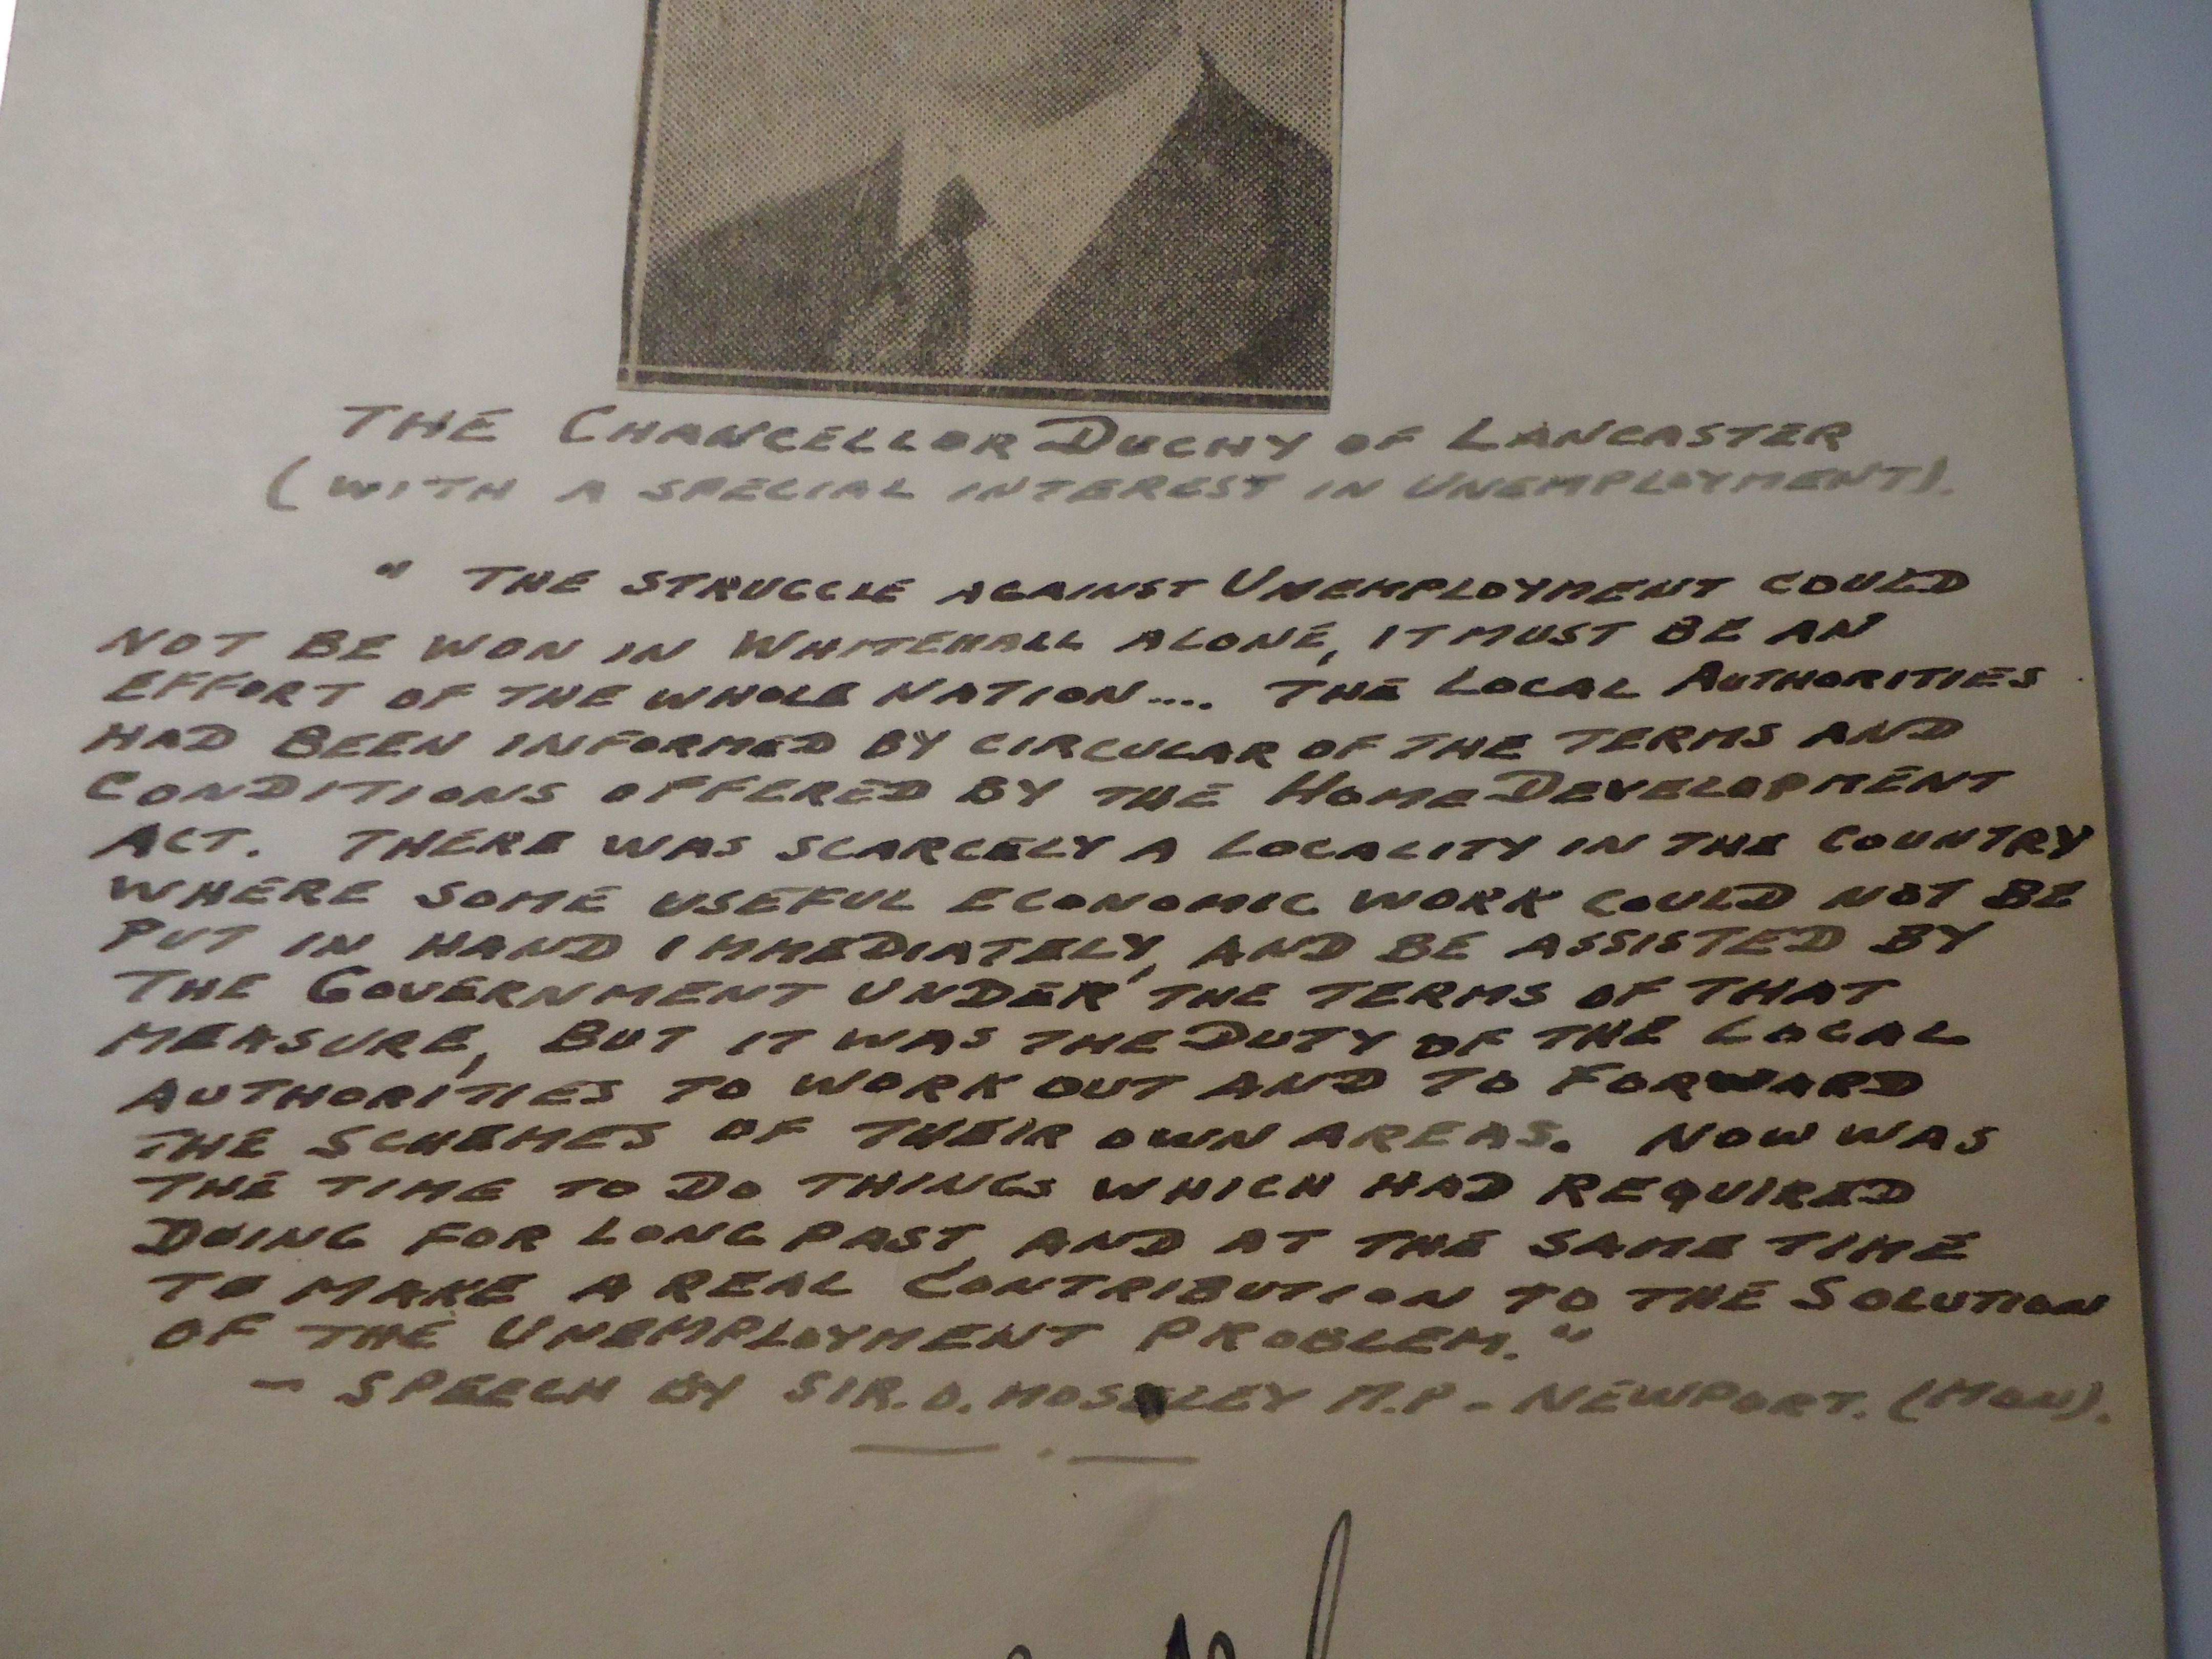 THE CHANCELLOR DUCHY OF LANCASTER
(WITH A SPECIAL INTEREST IN UNEMPLOYMENT).
" THE STRUGGLE AGAINST UNEMPLOYMENT COULD
NOT BE WON IN WHITEHALL ALONE, IT MUST BE AN
EFFORT OF THE WHOLE NATION.... THE LOCAL AUTHORITIES
HAD BEEN INFORMED BY CIRCULAR OF THE TERMS AND
CONDITIONS OFFERED BY THE HOME DEVELOPMENT
ACT. THERE WAS SCARCELY A LOCALITY IN THE COUNTRY
WHERE SOME USEFUL ECONOMIC WORK COULD NOT BE
PUT IN HAND IMMEDIATELY, AND BE ASSISTED BY
THE GOVERNMENT UNDER THE TERMS OF THAT
MEASURE, BUT IT WAS THE DUTY OF THE LOCAL
AUTHORITIES TO WORK OUT AND TO FORWARD
THE SCHEMES OF THEIR OWN AREAS. NOW WAS
THE TIME TO DO THINGS WHICH HAD REQUIRED
DOING FOR LONG PAST, AND AT THE SAME TIME
TO MAKE A REAL CONTRIBUTION TO THE SOLUTION
OF THE UNEMPLOYMENT PROBLEM."
- SPEECH BY SIR. O. MOSLEY M.P - NEWPORT. (MON).